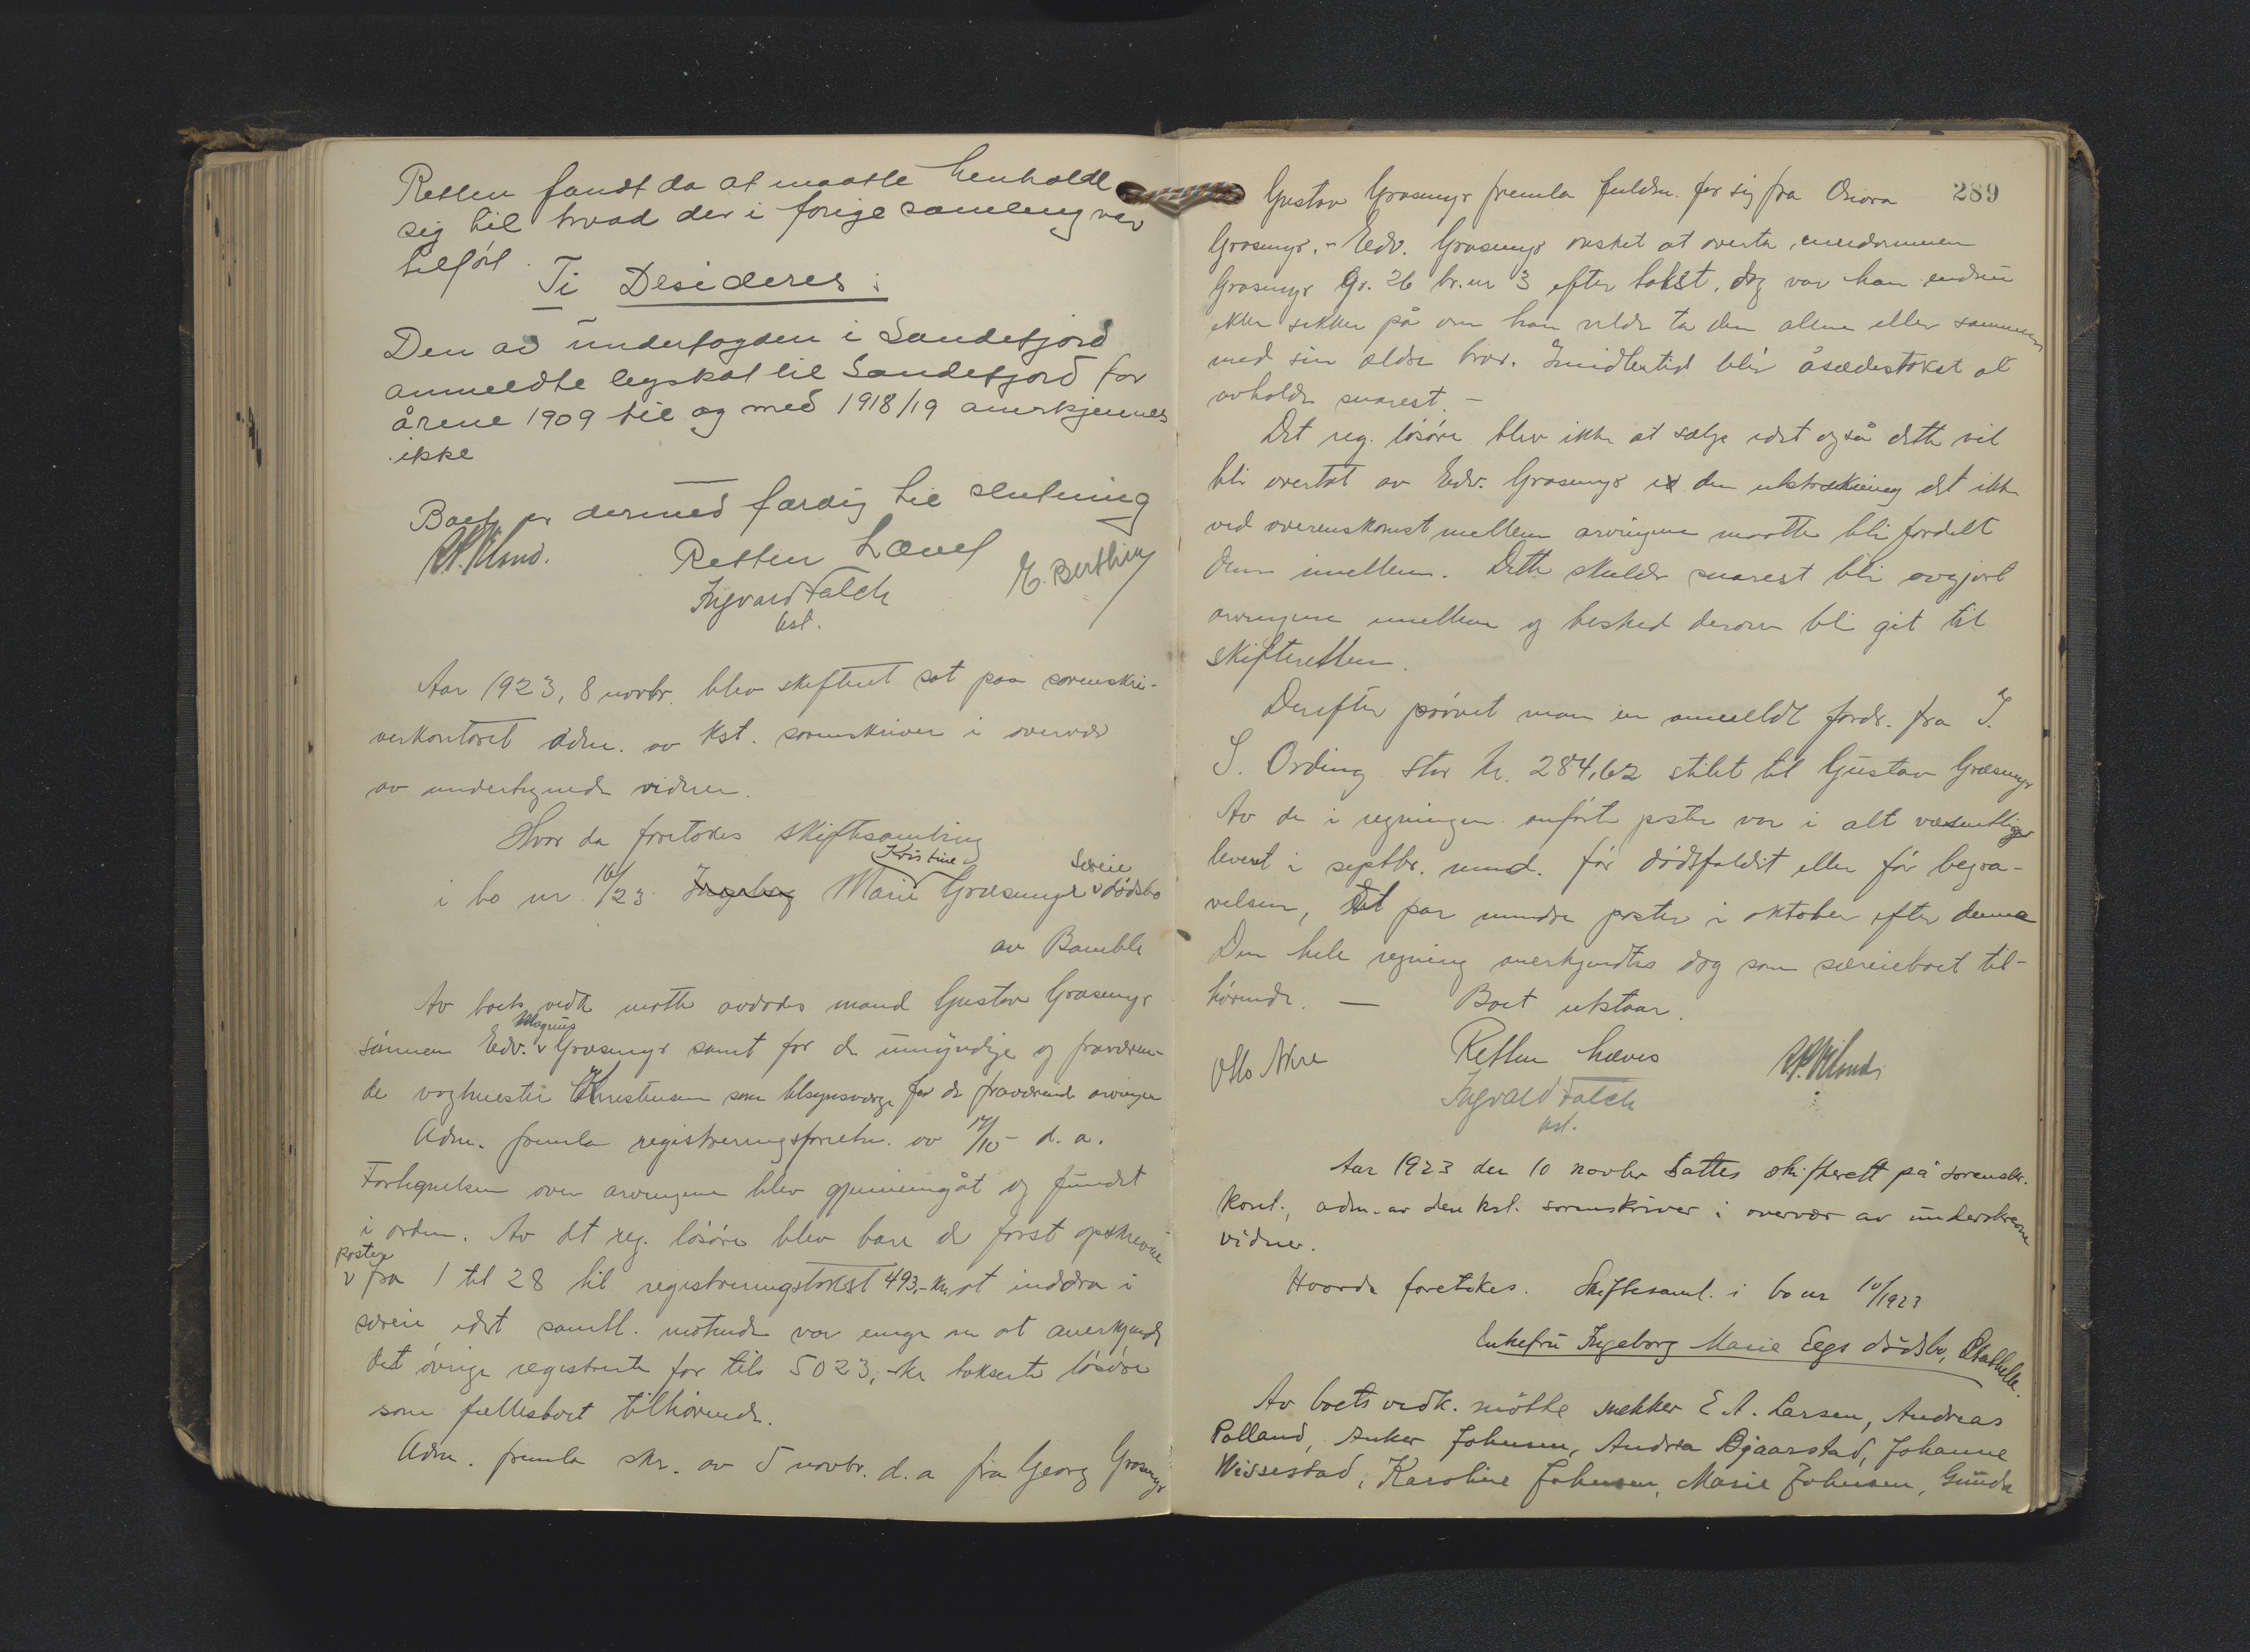 Retten fandt da at maatte henholde
sig til hvad der i forige samling var
tilført.
Ti Desideres:
Den av underfogden i Sandefjord
anmeldte byskat til Sandefjord for
årene 1909 til og med 1918/19 anerkjennes
ikke
Boet er dermed færdig til slutning
Retten hævet
Ingvald Falch
kst.
E. Berthin
Aar 1923, 8 novbr. blev skifteret sat paa sorenskri-
verkontoret adm. av kst. sorenskriver i overvær
av undertegnede vidner.
Hvor da foretokes skiftesamling
Kristine særeie
i bo nr 16/23 Ingeborg Marie Grasmyr v dødsbo
av Bamble
Av boets vedk møtte avdødes mand Gustav Grasmyr
Magnus
sønnen Edv. v Grasmyr samt for de umyndige og fraværen-
de vognmester Christensen som tilsynsverge for de fraværende arvinger
Adm. fremla registreringsforretn. av 17/10 - d. a.
Fortegnelsen over arvingene blev gjennemgåt og fundet
i orden. Av det reg. løsøre blev bare de først opskrevne
poster
v fra 1 til 28 til registreringstakst 493,- kr. at inddra i
særeie idet samtl. møtende var enige om at anerkjende
det øvrige registrerte for tils 5023,- kr takserte løsøre
som fællesboet tilhørende.
Adm. fremla skr. av 5 novbr. d. a fra Georg Grasmyr
289
Gustav Grasmyr fremla fuldm. for sig fra Onora
Grasmyr. - Edv. Grasmyr ønsket at overta eiendommen
Grasmyr Gr. 26 br. nr 3 efter takst, dog var han endnu
ikke sikker på om han vilde ta den alene eller sammen
med sin ældre bror. Imidlertid blir åsædestakst at
avholde snarest. -
Det reg. løsøre blev ikke at sælge idet også dette vil
bli overtat av Edv. Grasmyr i den utstrækning det ikke
ved overenskomst mellem arvingene maatte bli fordelt
dem imellem. Dette skulde snarest bli avgjort
arvingene imellem og besked derom bli git til
skifteretten.
Derefter prøvet man en anmeldt fordr. fra I.
S. Ording stor kr. 284,62 stilet til Gustav Grasmyr
Av de i regningen anført poster var i alt væsentlige
levert i septbr. mnd. før dødsfaldet eller før begra-
velsen, et par mindre poster i oktober efter denne
Den hele regning anerkjendtes dog som særeieboet til-
hørende. — Boet utstaar.
Retten hæves
Otto Akre
Ingvald Falch
kst.
Aar 1923 den 10 novbr sattes skifterett på sorenskr.
kont., adm. av den kst. sorenskriver i overvær av underskrevne
vidner.
Hvorda foretokes. Skiftesaml. i bo nr 10/1923
Enkefru Ingeborg Marie Eegs dødsbo, Stathelle.
Av boets vedk. møtte snekker E A. Larsen, Andreas
Polland, Anker Johnsen, Andrea Bjaarstad, Johanne
Wissestad, Karoline Johnsen, Marie Johnsen, Gunda